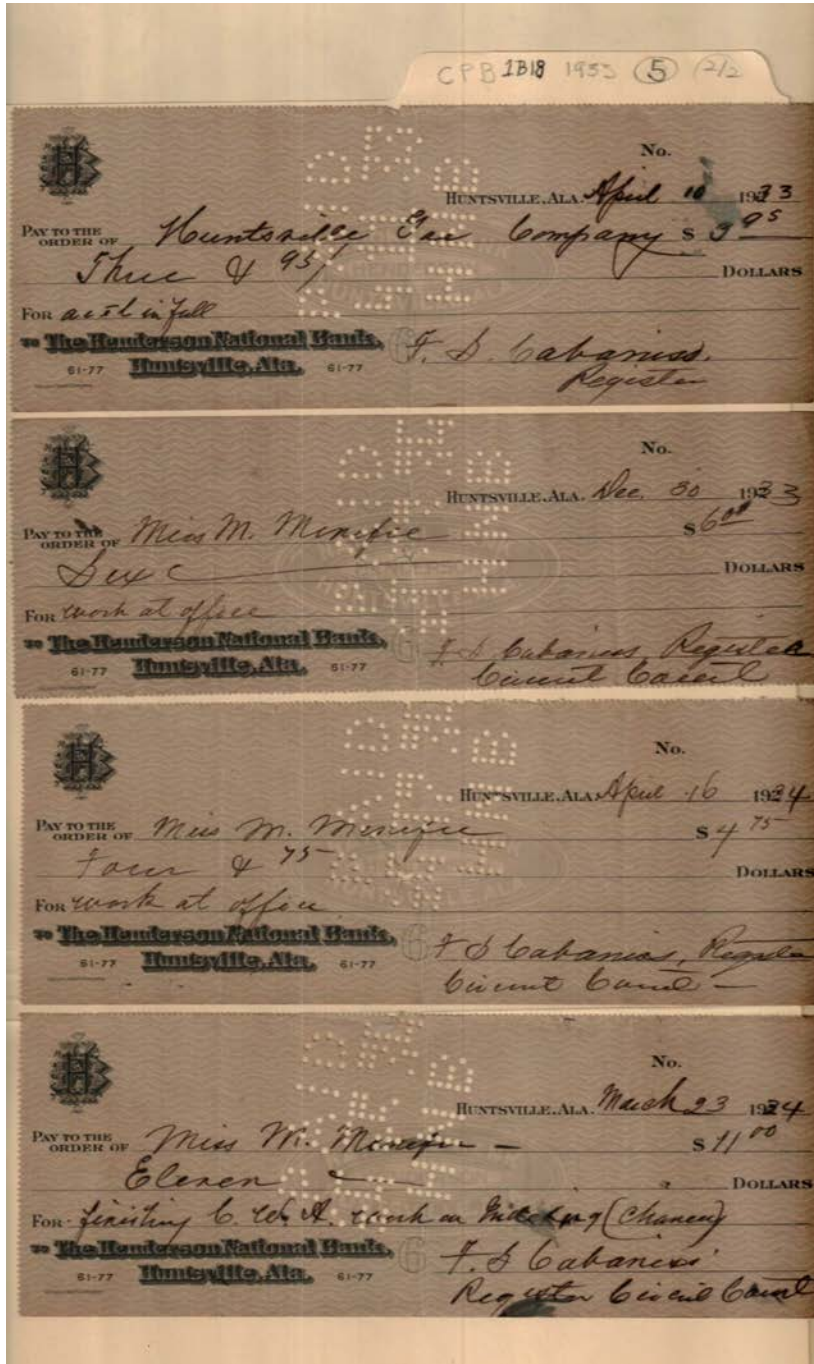 CPB 1B18 1933 5 2/2
No.
HUNTSVILLE, ALA. April 10 1933
PAY TO THE ORDER OF Huntsville Gas Company $ 3 95
Three & 95/ DOLLARS
FOR acct in full
TO The Henderson National Bank, F. S. Cabaniss.
61-77 Huntsville, Ala. 61-77 Register
No.
HUNTSVILLE, ALA. Dec. 30 1933
PAY TO THE ORDER OF Miss M. Menefee $ 6 00
Six DOLLARS
FOR work at office
TO The Henderson National Bank, F S Cabaniss, Register
61-77 Huntsville, Ala. 61-77 Circuit Court
No.
HUNTSVILLE, ALA. April 16 1934
PAY TO THE ORDER OF Miss M. Menefee $ 4 75
Four & 75 DOLLARS
FOR work at office
TO The Henderson National Bank, F S Cabaniss, Register
61-77 Huntsville, Ala. 61-77 Circuit Court
No.
HUNTSVILLE, ALA. March 23 1934
PAY TO THE ORDER OF Miss M. Menefee $ 11 00
Eleven DOLLARS
FOR finishing C. W. A. work on Indexing (Chancery)
TO The Henderson National Bank, F. S Cabaniss
61-77 Huntsville, Ala. 61-77 Register Circuit Court